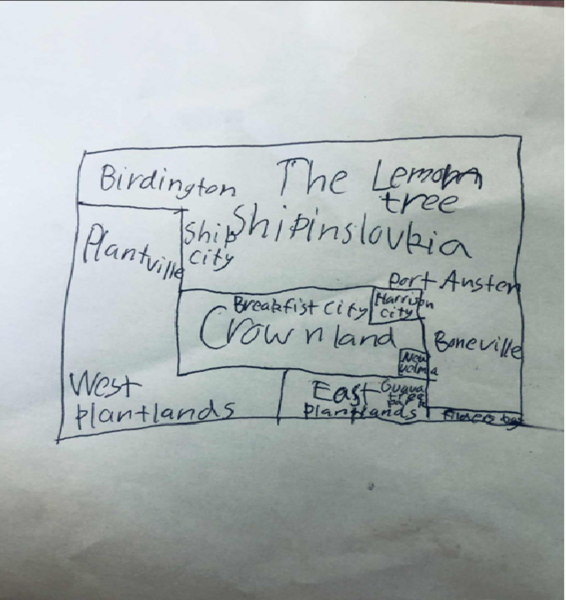 Birdington
The Lemon
tree
Shipinslovkia
Ship
city
Plantville
Port Austen
Breakfist City
Harrison
city
Crownland
Boneville
New
West
plantlands
East
plantlands
Guava
tree